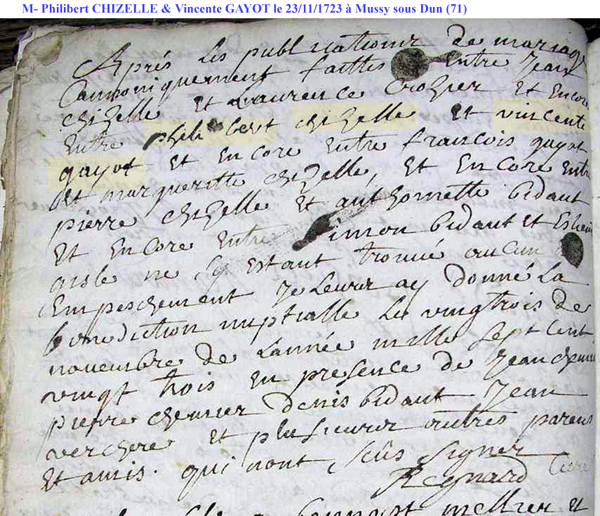 M- Philibert CHIZELLE & Vincente GAYOT le 23/11/1723 à Mussy sous Dun (71)
Aprés les publications de mariage
Canoniquement faittes Entre Jean
chizelle Et Laurence Crozier Et Encore
Entre philibert chizelle Et vincente
gayot Et Encore Entre françois gayot
Et margueritte chizelle, Et Encore Entre
pierre chizelle Et anthoinette bidaut
Et Encore Entre simon bidaut Et
ne sy Estant trouvé aucun
Empeschement Je leur ay donné La
benediction nuptialle Le vingtrois de
novembre de Lannée mille sept Cent
vingt trois En presence de Jean
pierre denis bidaut Jean
verchere Et plusieurs autres parens
Et amis. qui nont sceus signer
Regnard Curé